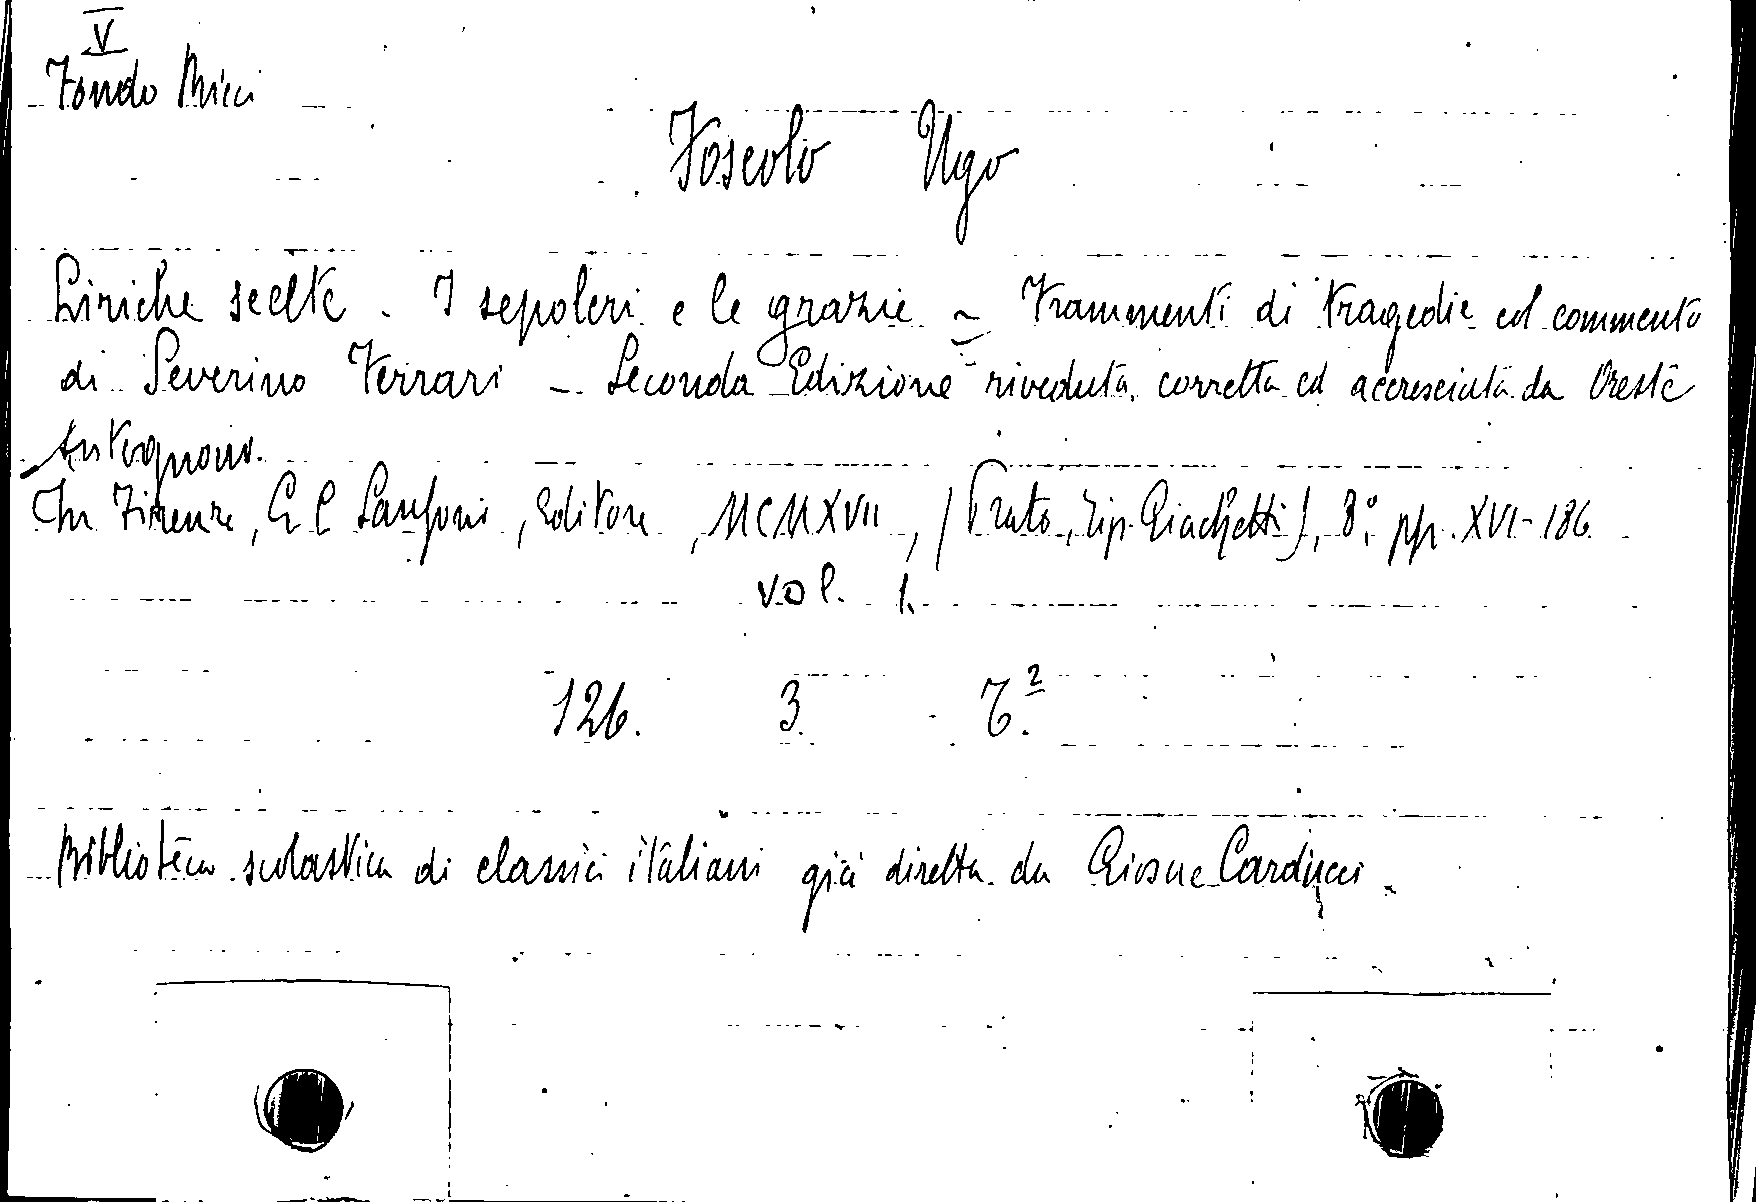 V
Fondo Ricci
Foscolo Ugo
Liriche scelte. I sepolcri e le grazie - Frammenti di tragedie col commento
di Severino Ferrari - Seconda Edizione riveduta, corretta ed accresciuta da Oreste
Antognoni.
In Firenze, G C Sansoni, Editore, MCMXVII, (Prato, Tip. Giachetti), 8° pp. XVI-186
vol. 1.
126. 3. 6.²
Biblioteca scolastica di classici italiani già diretta da Giosue Carducci.